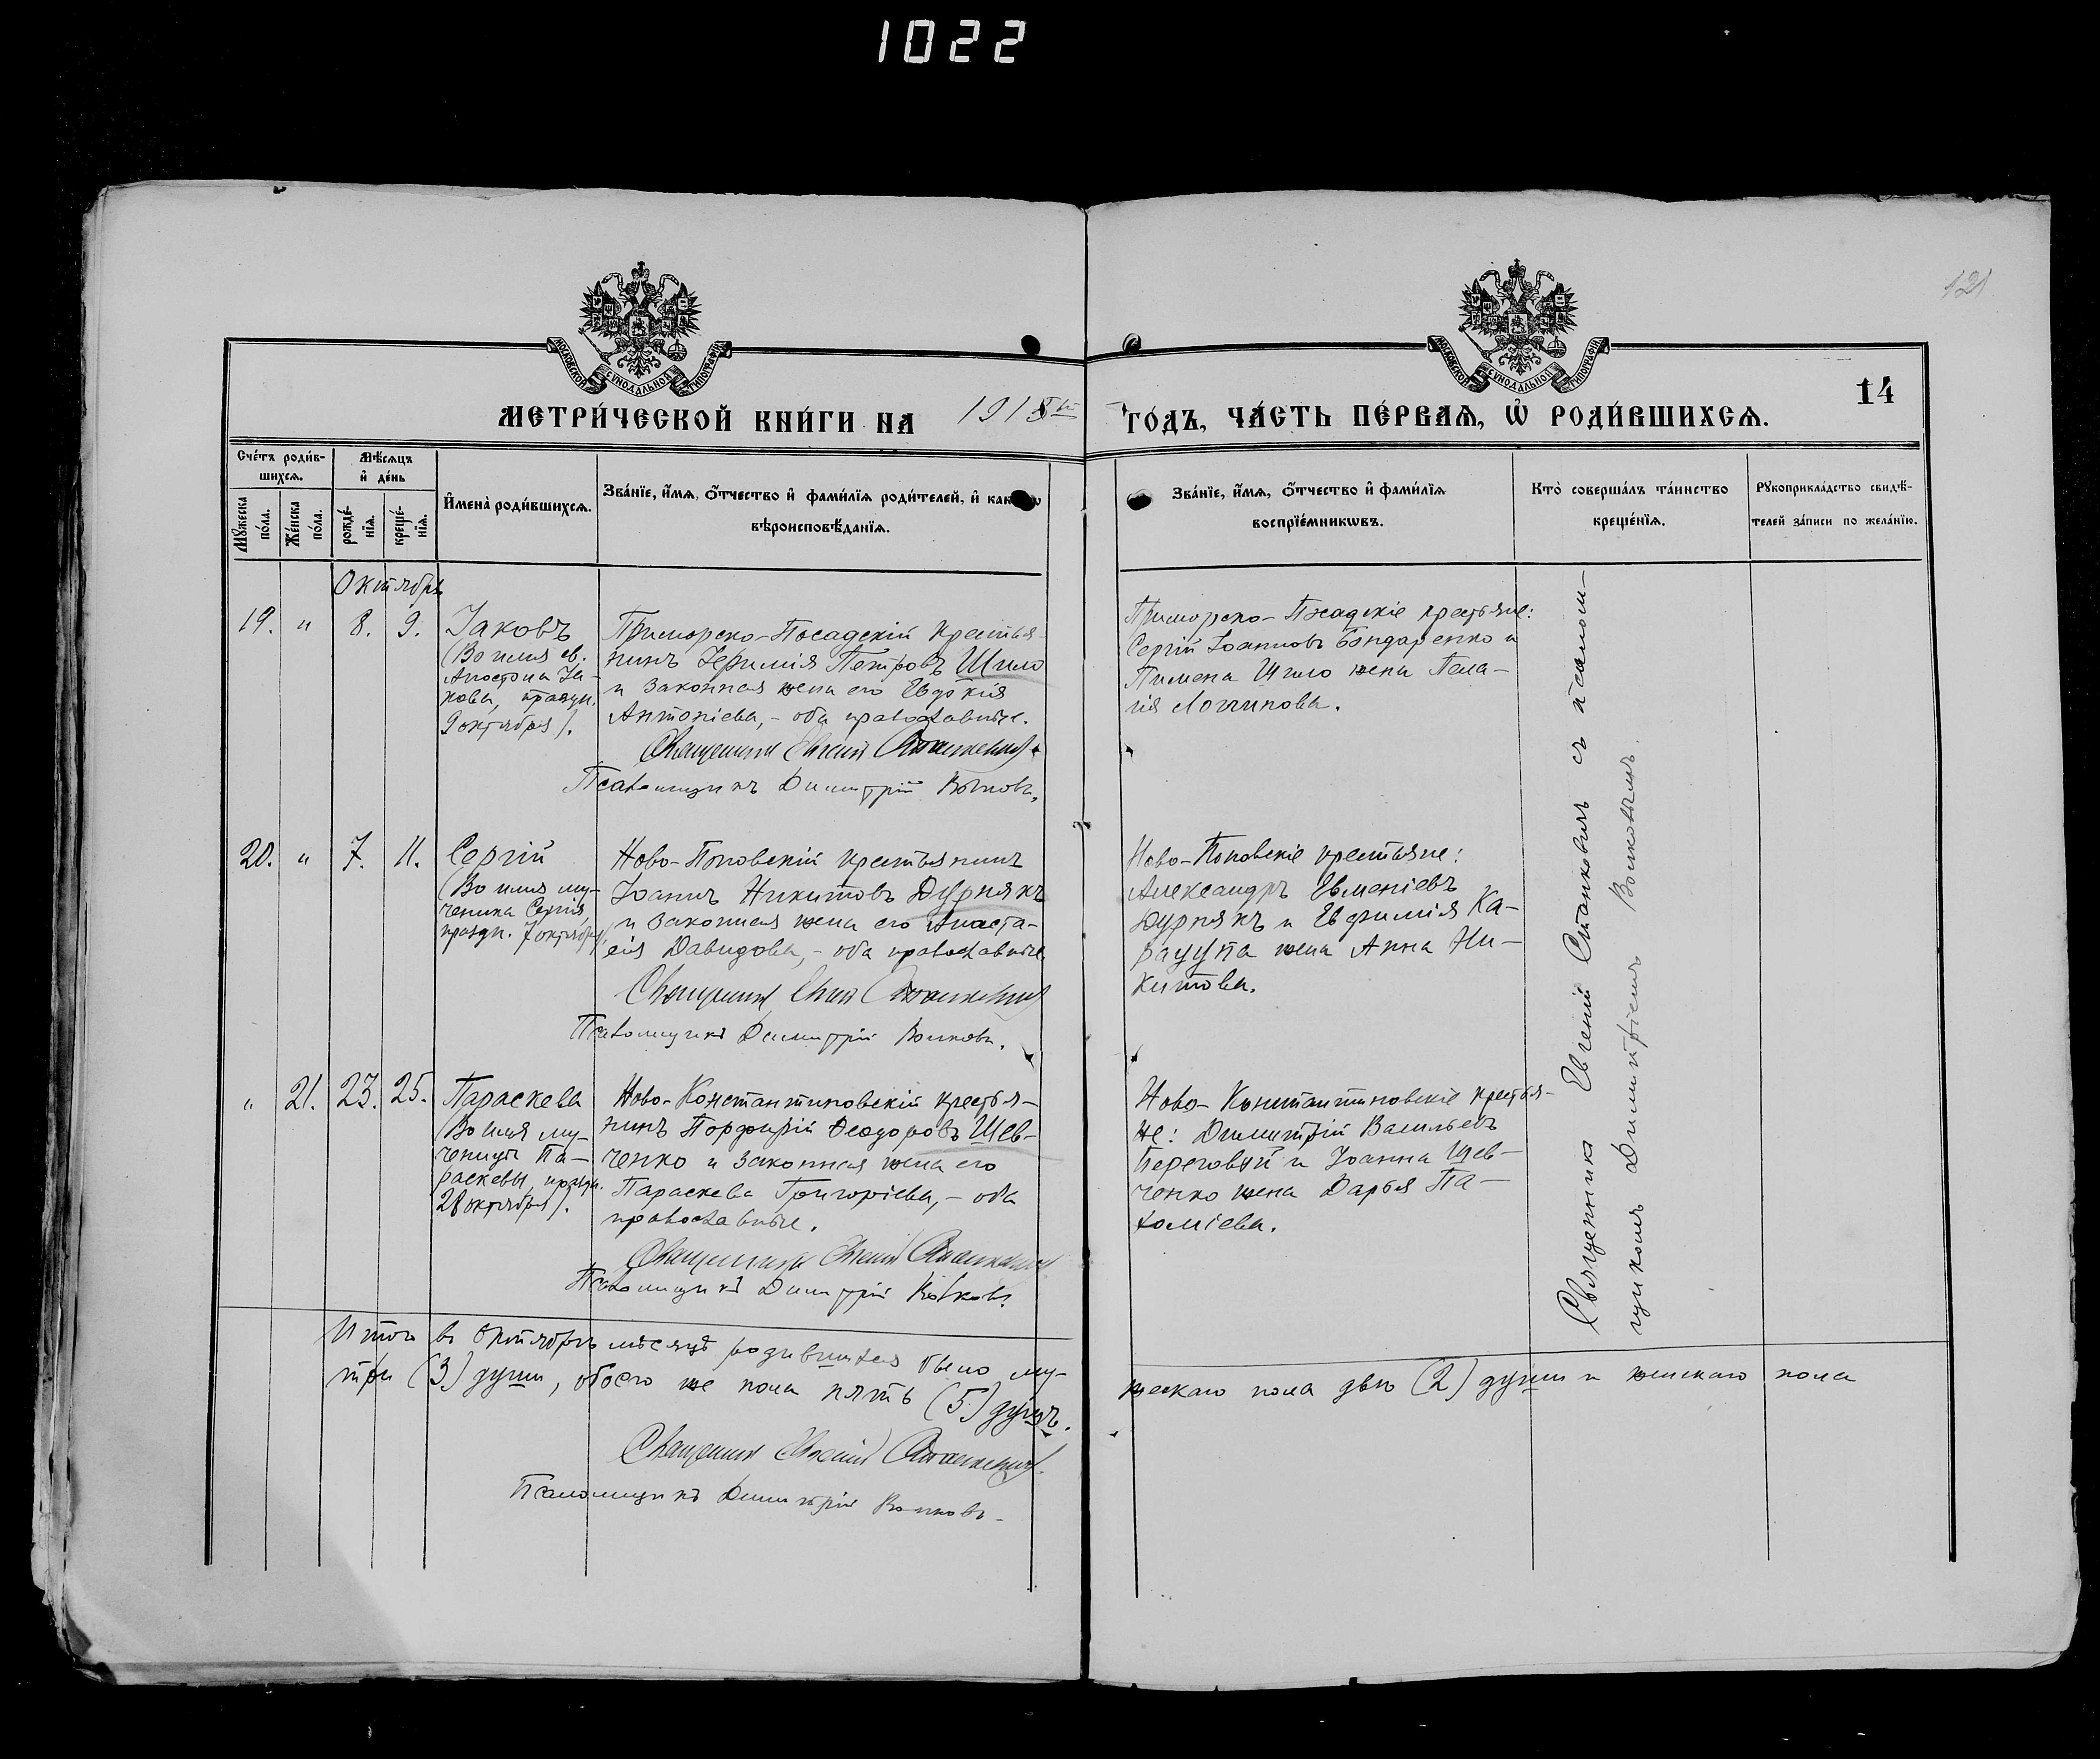 1022
121
МОСКОВСКОЙ СѴНОДАЛЬНОЙ ТИПОГРАФІИ
МОСКОВСКОЙ СѴНОДАЛЬНОЙ ТИПОГРАФІИ
14
МЕТРИ́ЧЕСКОЙ КНИ́ГИ НА 191 го́дъ, ча́сть пе́рваѧ, ѡ҆ роди́вшихсѧ.
Сче́тъ роди́в-
шихсѧ.
Мѣ́сѧцъ
и҆ де́нь
Мꙋ́жеска по́ла.
Же́нска по́ла.
рожде́-
нїѧ.
креще́-
нїѧ.
И҆мена̀ роди́вшихсѧ.
Зва́нїе, и҆́мѧ, ѻ҆́тчество и҆ фами́лїѧ роди́телей, и҆ как
вѣроисповѣ́данїѧ.
Зва́нїе, и҆́мѧ, ѻ҆́тчество и҆ фами́лїѧ
воспрїе́мникѡвъ.
Кто̀ соверша́лъ та́инство
креще́нїѧ.
Рꙋкоприкла́дство свидѣ́-
телей за́писи по жела́нїю.
Октябрь
19. " 8. 9.
Іаковъ
(Во имя св.
Апостола Іа-
кова, праздн.
9 октября).
Приморско-Посадскій крестья-
нинъ Іеримія Петровъ Шило
и законная жена его Евдокія
Антоніева,- оба православные.
Священникъ Евгеній Станкевичъ
Псаломщикъ Димитрій Волковъ.
Приморско-Посадскіе крестьяне:
Сергій Іоанновъ Бондаренко и
Пимена Шило жена Пела-
гія Логгинова.
20. " 7. 11.
Сергій
(Во имя му-
ченика Сергія,
праздн. 7 октября)
Ново-Поповскій крестьянинъ
Іоаннъ Никитовъ Дурнякъ
и законная жена его Анаста-
сія Давидова,- оба православные
Священникъ Евгеній Станкевичъ
Псаломщикъ Димитрій Волковъ.
Ново-Поповскіе крестьяне:
Александръ Евменіевъ
Дурнякъ и Евфимія Ка-
жена Анна Ни-
китова.
" 21. 23. 25.
Параскева
(Во имя му-
ченицы Па-
раскевы, праздн.
28 октября).
Ново-Константиновскій крестья-
нинъ Порфирій Ѳеодоровъ Шев-
ченко и законная жена его
Параскева Григоріева,- оба
православные.
Священникъ Евгеній Станкевичъ
Псаломщикъ Димитрій Волковъ.
Ново-Константиновскіе крестья-
не: Димитрій Васильевъ
Береговый и Іоанна Шев-
ченко жена Дарья Па-
хоміева.
Священникъ Евгеній Станкевичъ съ псалом-
щикомъ Димитріемъ Волковымъ.
Итого въ Октябрѣ мѣсяцѣ родившихся было му-
жескаго пола двѣ (2) души и женскаго пола
три (3) души, обоего же пола пять (5) душъ.
Священникъ Евгеній Станкевичъ.
Псаломщикъ Димитрій Волковъ.